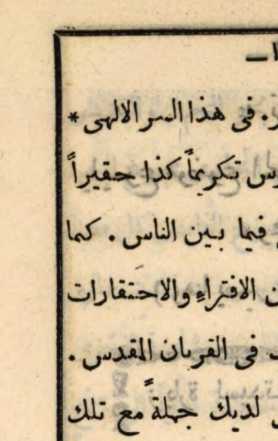 فى هذا السر الالهى *
تكريماً كذا حقيراً
فيما بين الناس . كما
الافتراءِ والاحتقارات
فى القربان المقدس .
لديك جملةً مع تلك